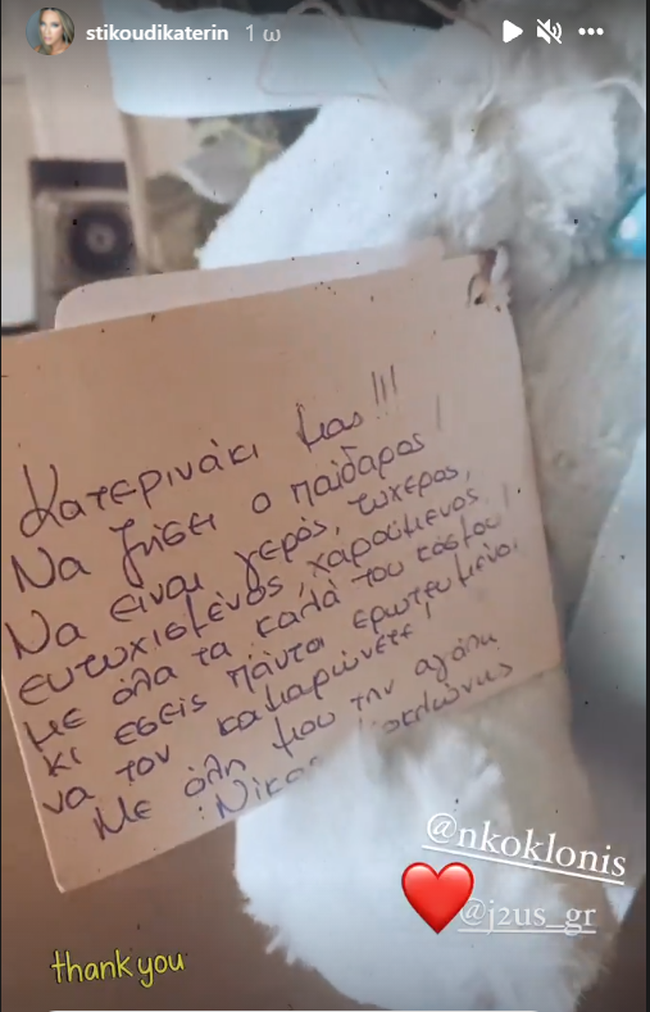 stikoudikaterin 1 ω
Κατερινάκι μας!!!
Να ζήσει ο παίδαρος!
Να είναι γερός, τυχερός,
ευτυχισμένος, χαρούμενος
με όλα τα καλά του κόσμου!
κι εσείς πάντα ερωτευμένοι
να τον καμαρώνετε!
Με όλη μου την αγάπη
Νίκος
@nkoklonis
@j2us_gr
thank you